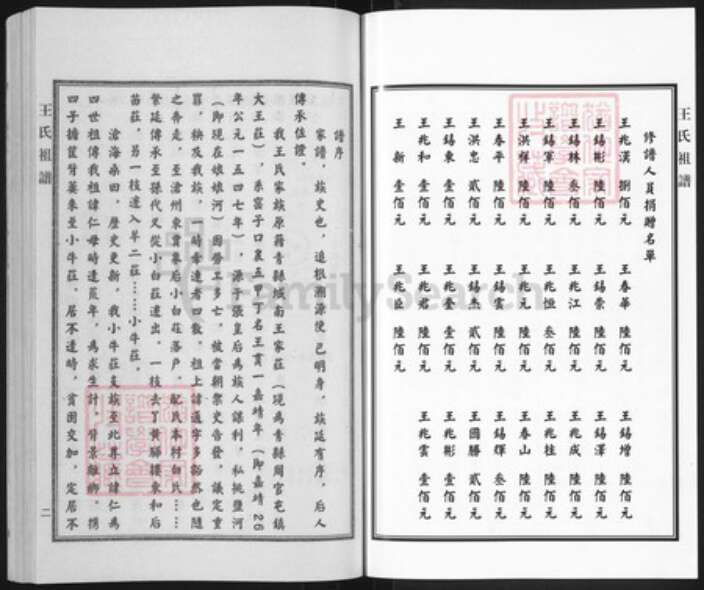 王氏祖譜
修譜人員捐贈名單
王兆漢 捌佰元 王春華 陸佰元 王錫增 陸佰元
王錫彬 陸佰元 王錫榮 陸佰元 王錫澤 陸佰元
王錫林 叁佰元 王兆江 陸佰元 王兆成 陸佰元
王錫軍 陸佰元 王兆恒 叁佰元 王兆柱 陸佰元
王洪祥 陸佰元 王兆元 陸佰元 王春山 陸佰元
王春平 陸佰元 王錫雲 陸佰元 王錫輝 叁佰元
王洪忠 貳佰元 王錫 貳佰元 王國勝 貳佰元
王錫東 壹佰元 王兆 壹佰元 王兆彬 壹佰元
王兆和 壹佰元 王兆君 陸佰元 王兆雲 壹佰元
王新 壹佰元 王兆臣 陸佰元
譜序
家譜，族史也，追根溯源使已明身，族延有序，后人
傳承佐證。
我王氏家族原籍青縣城南王家莊（現為青縣周官屯鎮
大王莊），系窩子口裏五甲丁名王貫一嘉靖年（即嘉靖26
年公元一五四七年），源于張皇后為族人謀利，私挑鹽河
（即現在娘娘河）因勞工多亡，被當朝禦史告發，議定重
罪，秧及我族，一時牽連者四散。祖上諱通字多豁然也隨
之奔走，至滄州東貫集后小白莊落户，配氏本村白氏……
繁延傳承至孫代又從小白莊遷出，一枝去了黄驊樸東和后
苗莊，另一枝遷入羊二莊……小牛莊。
滄海桑田，歷史更新，我小牛莊支族至北尊立諱仁為
四世祖傳我祖諱仁母時逢荒年，為求生計，背景離鄉，携
四子擔筐背簍來至小牛莊。居不逢時，貧困交加，定居不
王氏祖譜
二
FamilySearch